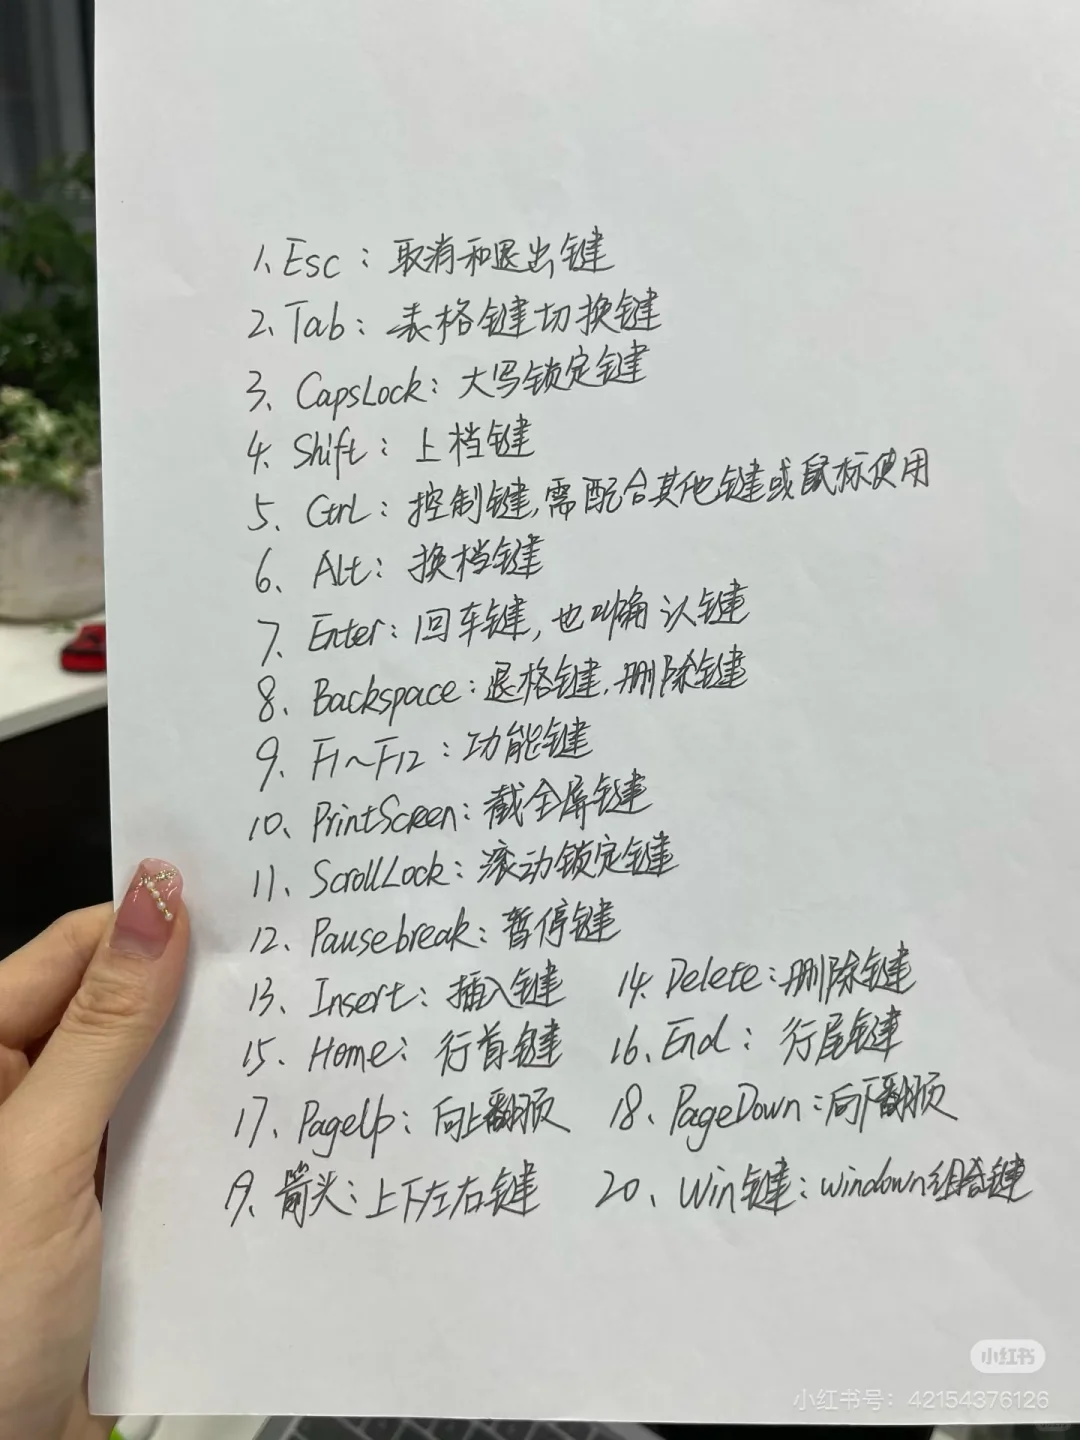 1、Esc：取消和退出键
2、Tab：表格键切换键
3、CapsLock：大写锁定键
4、Shift：上档键
5、Ctrl：控制键,需配合其他键或鼠标使用
6、Alt：换档键
7、Enter：回车键，也叫确认键
8、Backspace：退格键,删除键
9、F1~F12：功能键
10、PrintScreen：截全屏键
11、ScrollLock：滚动锁定键
12、Pausebreak：暂停键
13、Insert：插入键 14、Delete：删除键
15、Home：行首键 16、End：行尾键
17、PageUp：向上翻页 18、PageDown：向下翻页
19、箭头：上下左右键 20、Win键：windown组合键
小红书
小红书号：42154376126